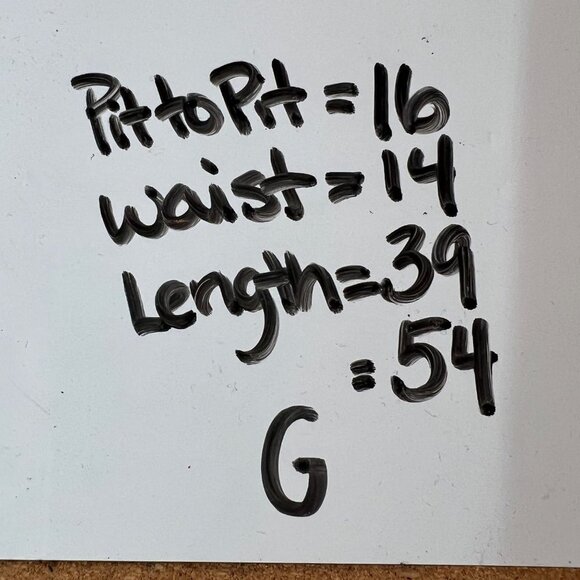 Pit to Pit = 16
waist = 14
Length = 39
= 54
G